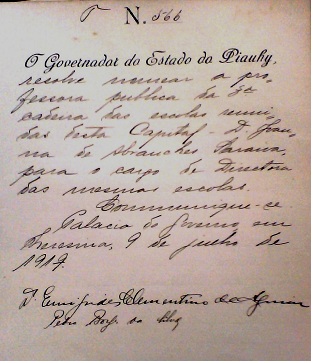 N. 566
O Governador do Estado do Piauhy,
resolve nomear a pro-
fessora publica da 5ª
cadeira das escolas reuni-
das desta Capital - D.
na de Abranches Saraiva,
para o cargo de Directora
das mesmas escolas.
Communique-se.
Palacio do Governo, em
Theresina, 9 de Julho de
1917.
Dr. Eurípides Clementino de Aguiar
Pedro Borges da Silva